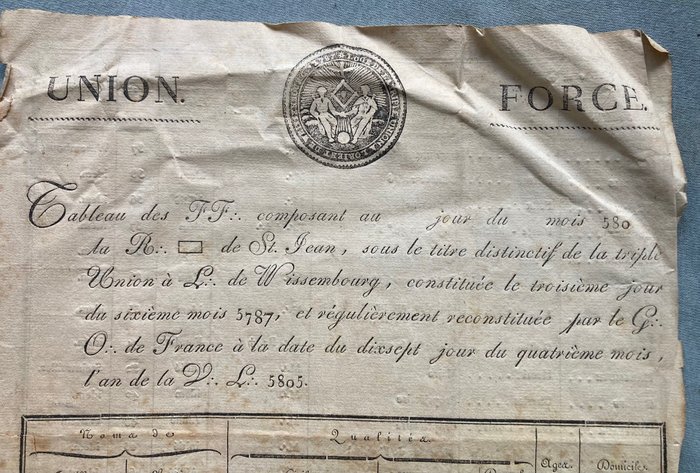 UNION. FORCE.
Tableau des FF∴ composant au jour du mois 580
la R∴ ▭ de St. Jean, sous le titre distinctif de la triple
Union à L∴ de Wissembourg, constituée le troisième jour
du sixième mois 5787, et régulièrement reconstituée par le G∴
O∴ de France à la date du dixsept jour du quatrième mois,
l'an de la V∴ L∴ 5805.
Noms de Qualités.
Ages Domiciles